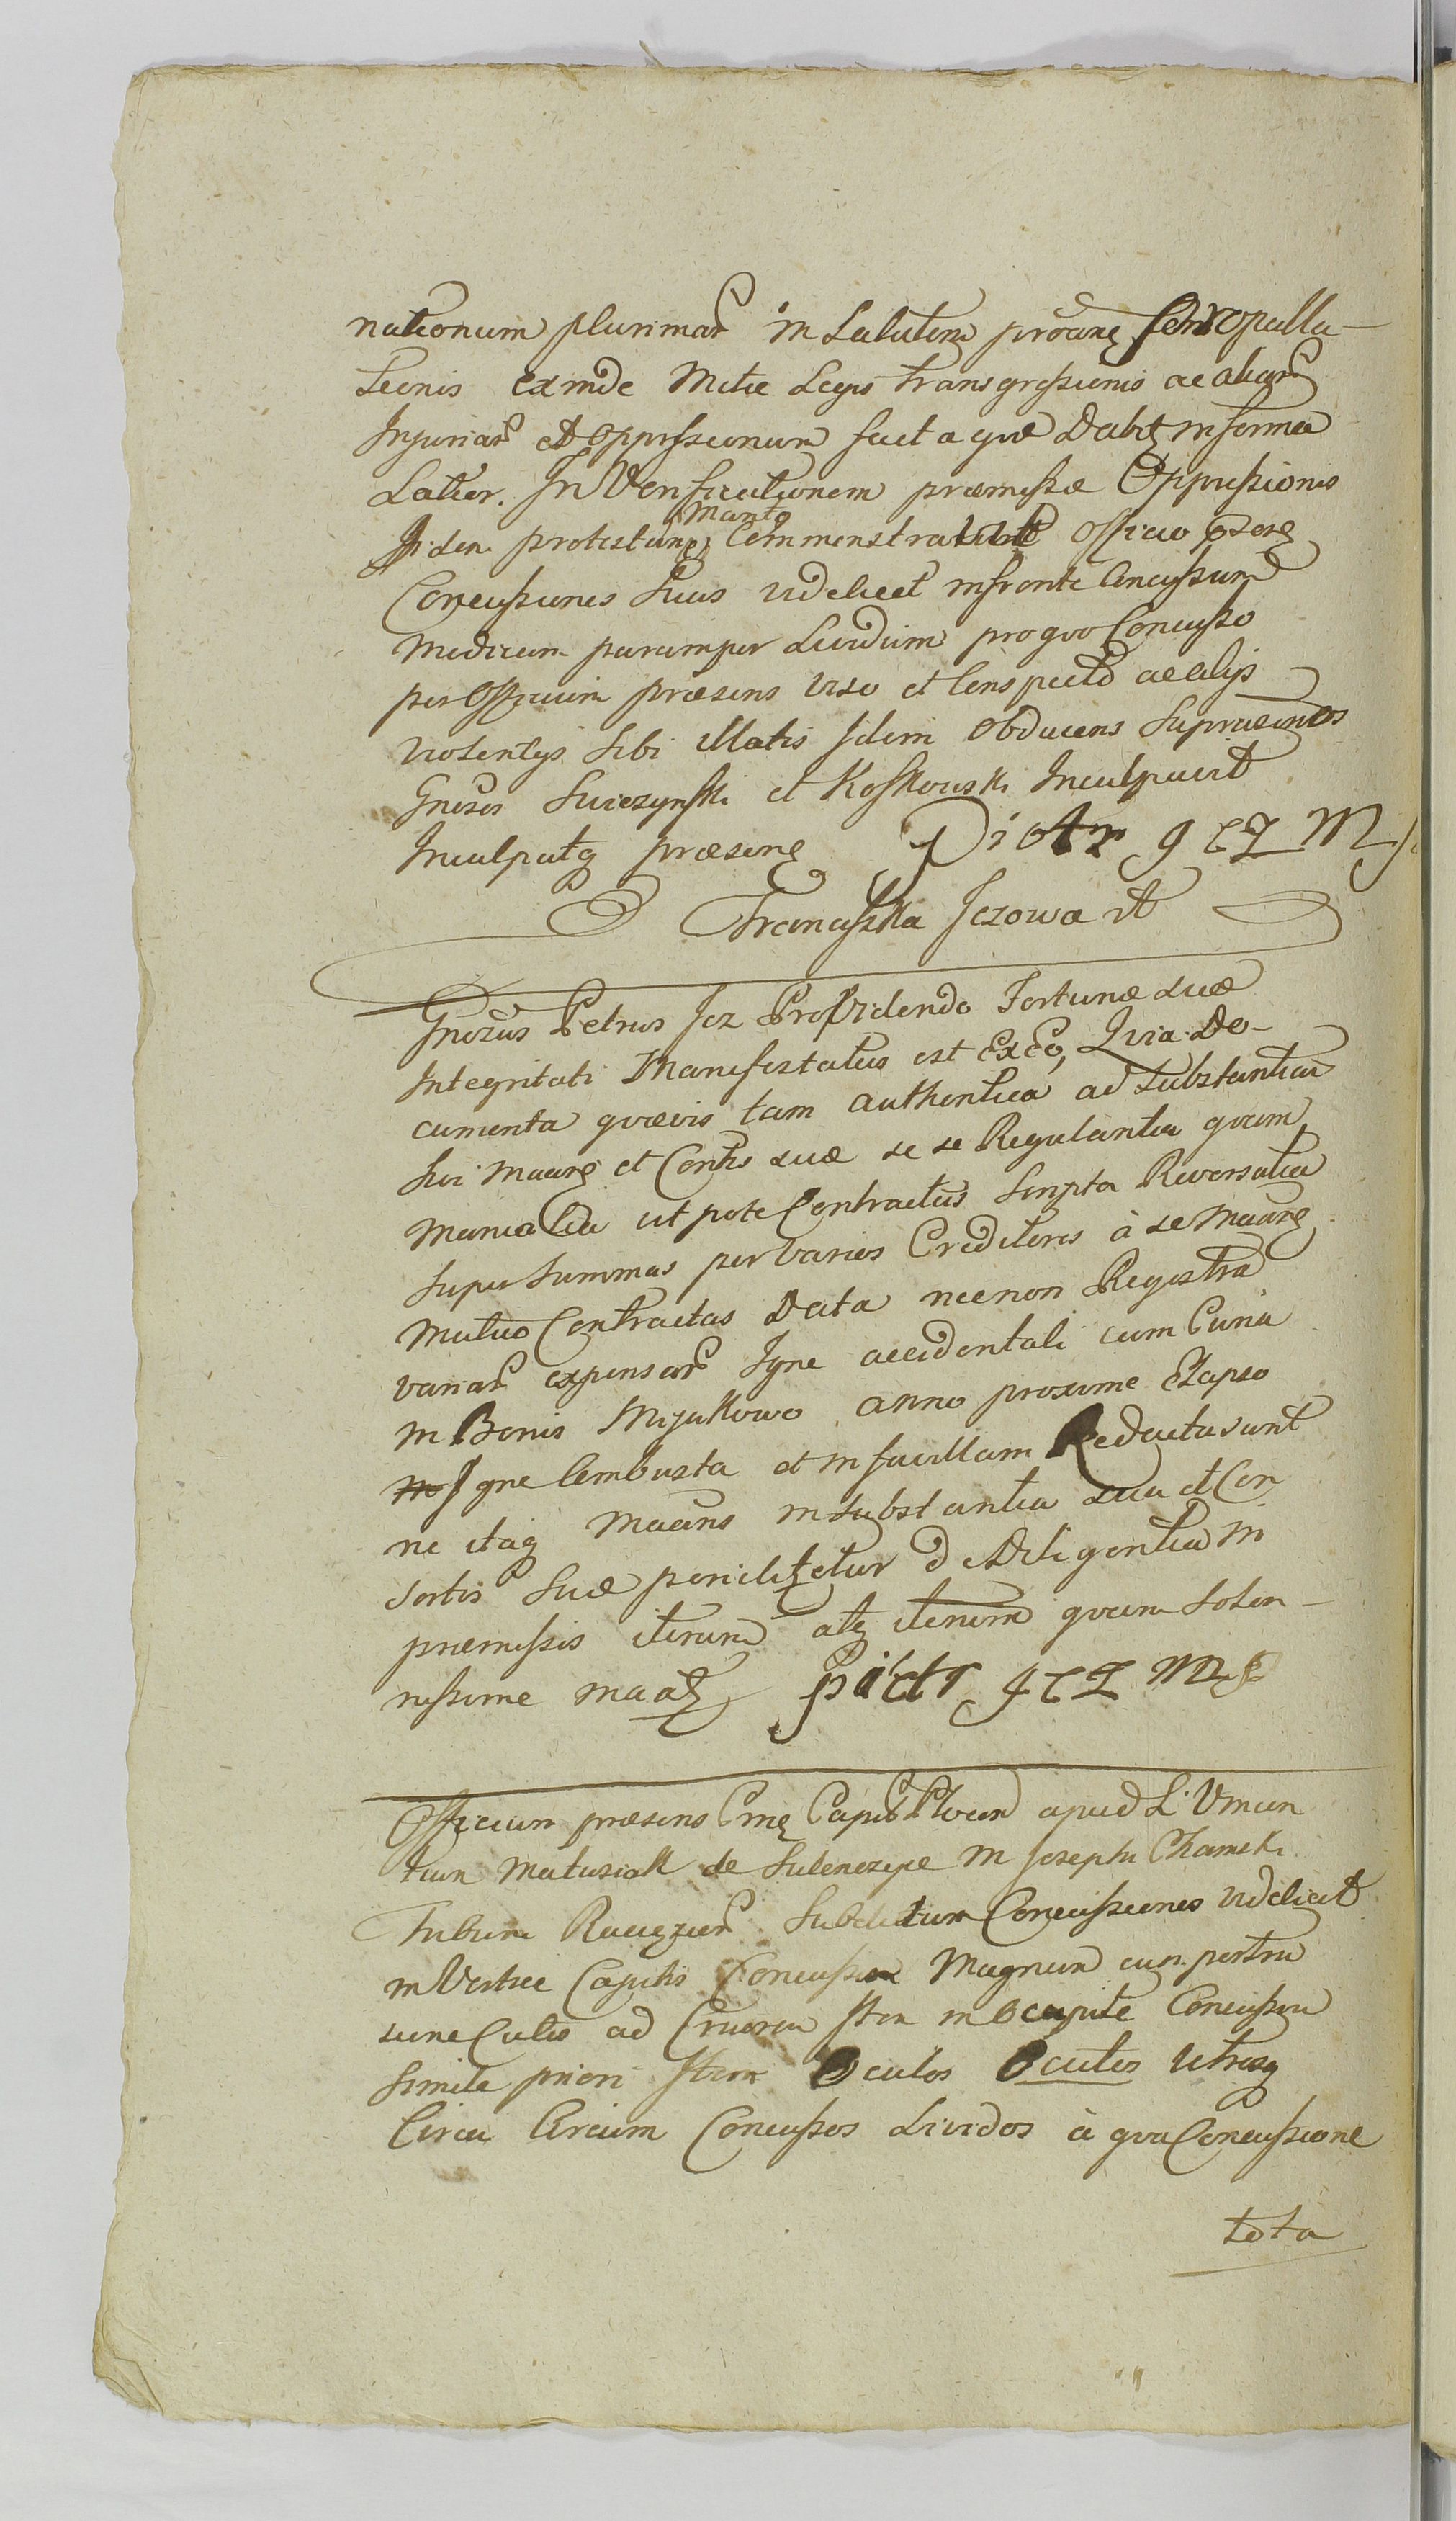 nationum plurimar in Salutem protune seu propulla-
tionis exinde Metæ Legis transgressionis ac aliar
Injuriar et Oppressionum fact a quæ Dabit in forma
Latior. In Verificationem præmissæ Oppressionis
Iidem protestan manto Commenstrat Officio
Concussiones Suas videlicet in fronte Concussum
Modicum parumper Lividum pro quo Concusso
per Officium præsens viso et Conspecto ac alijs
violentijs Sibi illatis Idem Obducens Supra
Gnosos Swiezynski et Koskowski Inculpavit
Inculpatq præsens Piotr gez M
Franciszka Jezowa
Gnosus Petrus Jez Providendo Fortunæ suæ
Integritati Manifestatus est Ex Eo, Quia Do-
cumenta quævis tam authentica ad Substantiam
Sui Maans et Cortis suæ se se Regulantia quam
Manualia utpote Contractus Scripta Reversalia
Super Summas per Varios Creditores à se Maans
Mutuo Contractas Data necnon Regestra
variar expensar Igne accidentali cum Curia
in Bonis Mijakowo anno proxime Elapso
Igne Combusta et in favillam Redacta sunt
ne itaq Maans in substantia sua et Con
sortis Suæ periclitetur de Diligentia in
præmissis iterum atq iterum quam Solen-
nissime maat Piotr gez M
Officium præsens Cape Plocen apud L. Vincen
tium Matusiak de Sulenczyce M Josephi Chamski
Tribuni Raciazien Subditum Concussiones videlicet
in Vertice Capitis Concussum Magnum cum pertu
sione Cutis ad Cruorem Item in Occipite Concussum
Simile priori Item Oculos Oculos Utrosq
Circa Circum Concussos Lividos à qua Concussione
tota